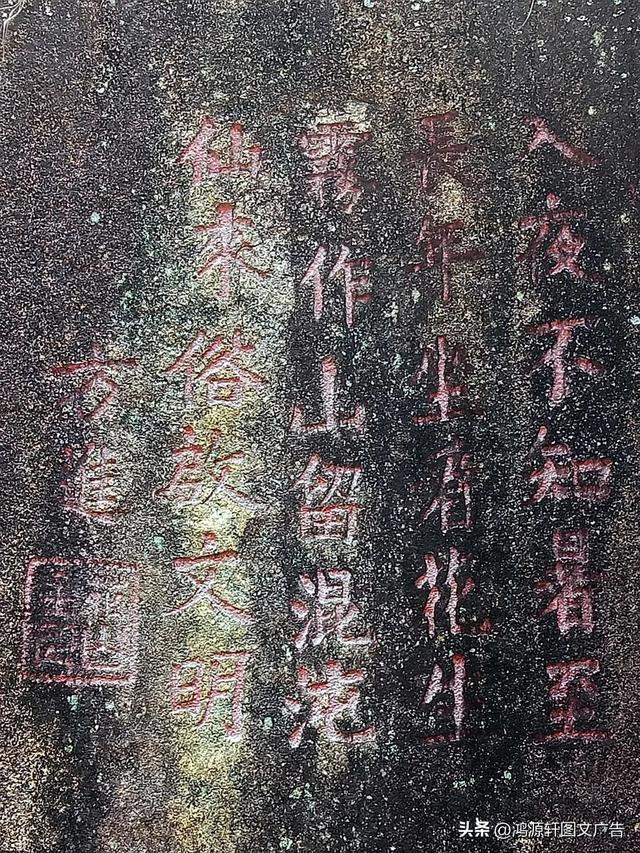 入夜不知暑至
長年坐看花生
霧作山留混沌
仙來俗啟文明
方進
头条 @鸿源轩图文广告